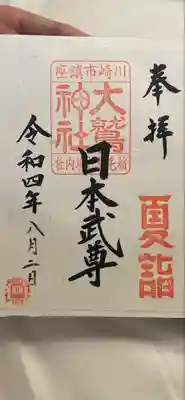 奉拝
夏詣
川崎市鎮座
大鷲
神社
日本武尊
令和四年八月二日